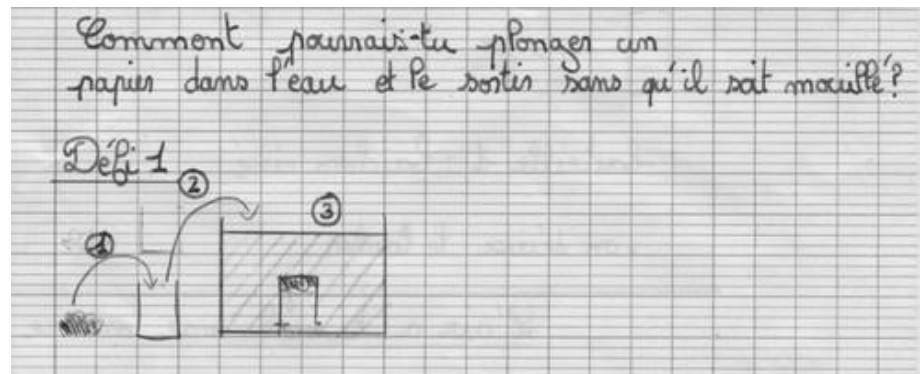 Comment pourrais-tu plonger un
papier dans l'eau et le sortir sans qu'il soit mouillé?
Défi 1
②
③
①